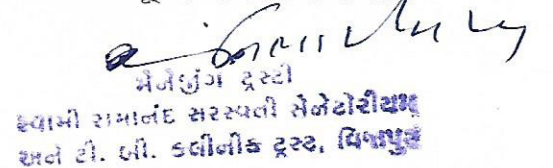 મેનેજીંગ ટ્રસ્ટી
સ્વામી રામાનંદ સરસ્વતી સેનેટોરીયમ
અને ટી. બી. કલીનીક ટ્રસ્ટ, વિજાપુર